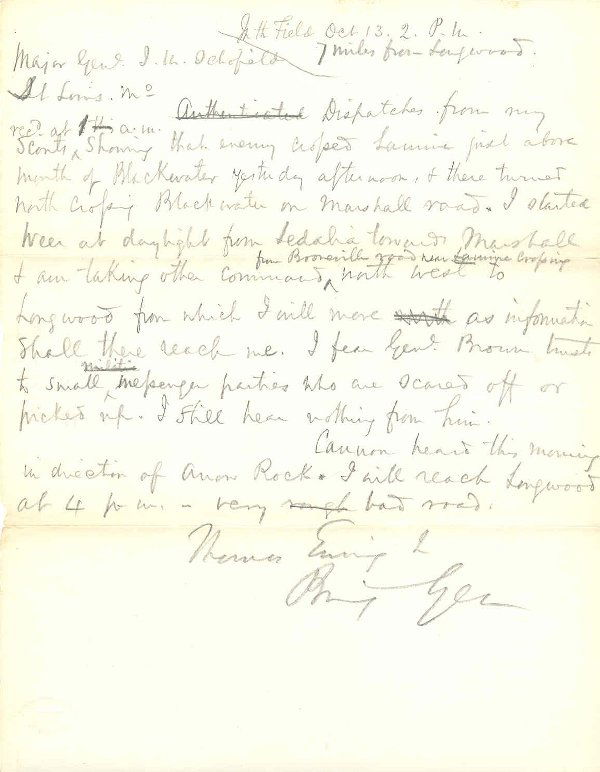 In the Field Oct 13. 2. P.M.
7 miles from Longwood.
Major Genl. J. M. Schofield
St Louis. Mo
Authenticated Dispatches from my
recd at 1 a.m.
Scouts, Showing that enemy crossed Lamine just above
mouth of Blackwater yesterday afternoon, & there turned
north crossing Blackwater on Marshall road. I started
Weer at daylight from Sedalia towards Marshall
from Booneville road near Lamine Crossing
& am taking other command north west to
Longwood from which I will move north as information
Shall there reach me. I fear Genl. Brown trusts
militia
to small messenger parties who are scared off or
picked up. I still hear nothing from him.
Cannon heard this morning
in direction of Arrow Rock. I will reach Longwood
at 4 p.m. - very rough bad road.
Thomas Ewing Jr
Brig Gen